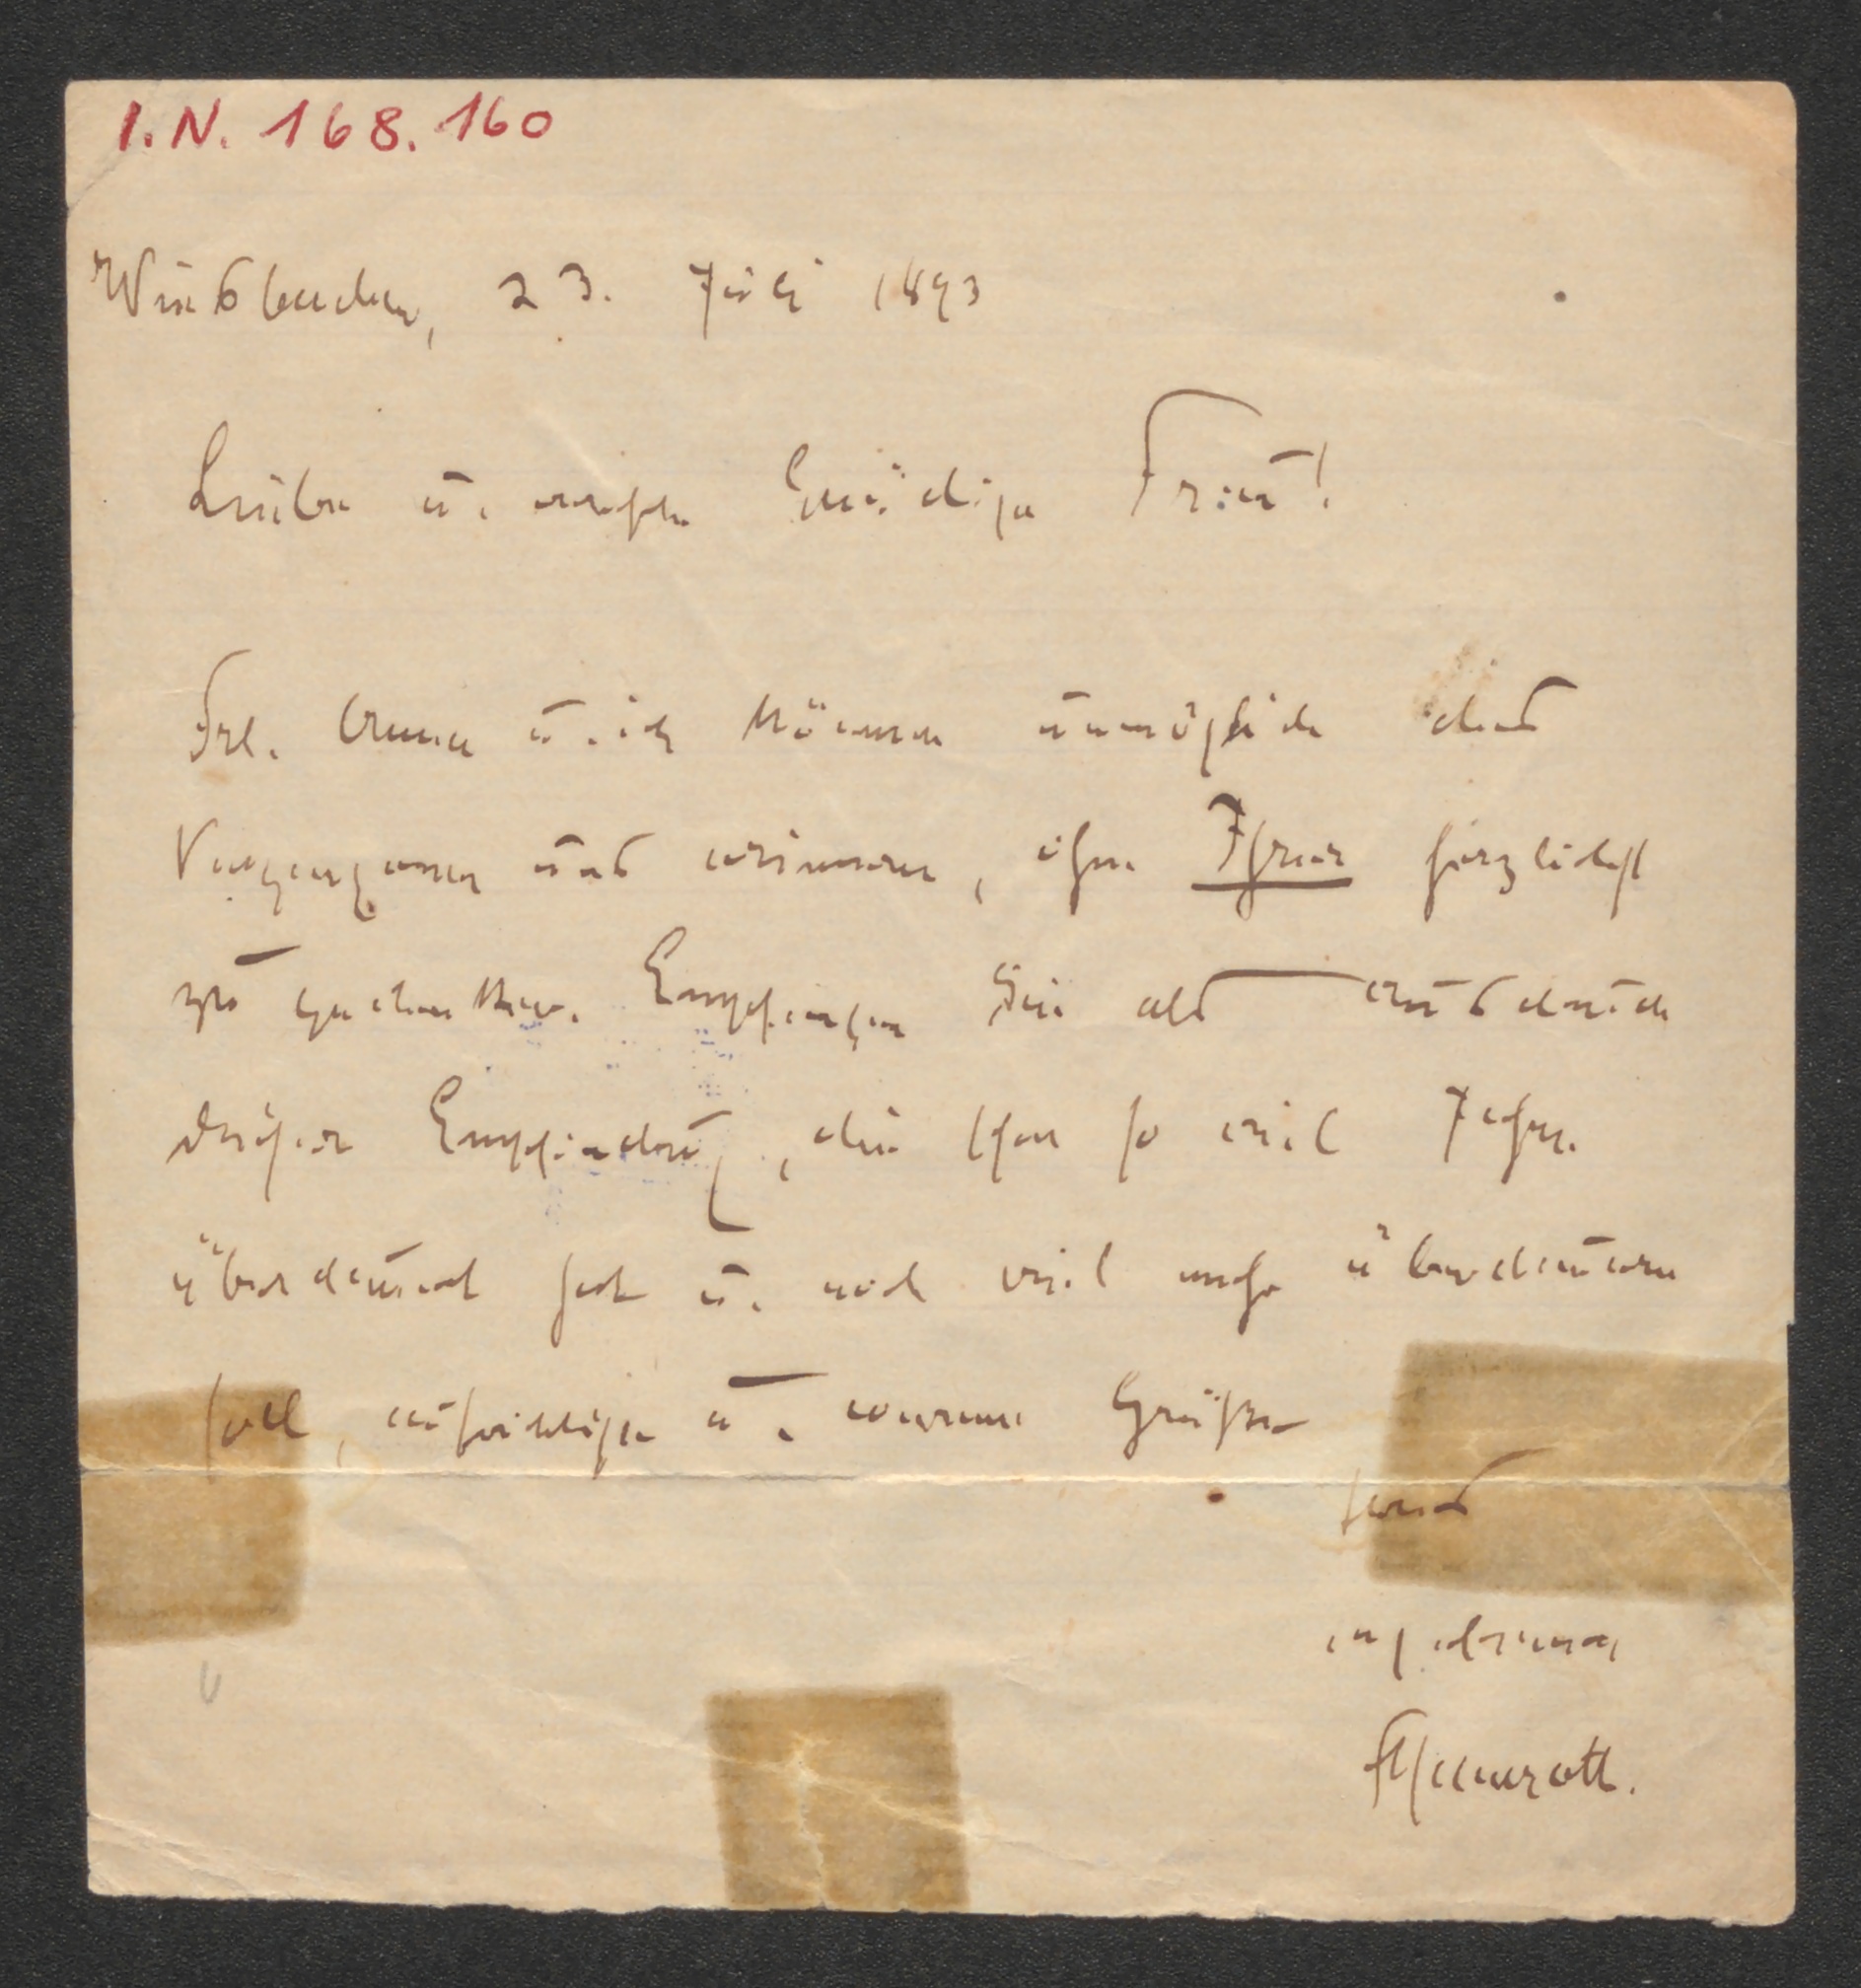 I.N. 168.160
Wiesbaden, 23. Juli 1893
Liebe u. gnädige Frau!
Frl. Anna u. ich können unmöglich des
Vergangenen uns erinnern, ohne Ihrer herzlichst
zu gedenken. Empfangen Sie als Ausdruck
dieser Empfindung, die schon so viel Jahre
überdauert hat u. noch viel mehr überdauern
soll, aufrichtige u. warme Grüße
Ihres
ergebenen